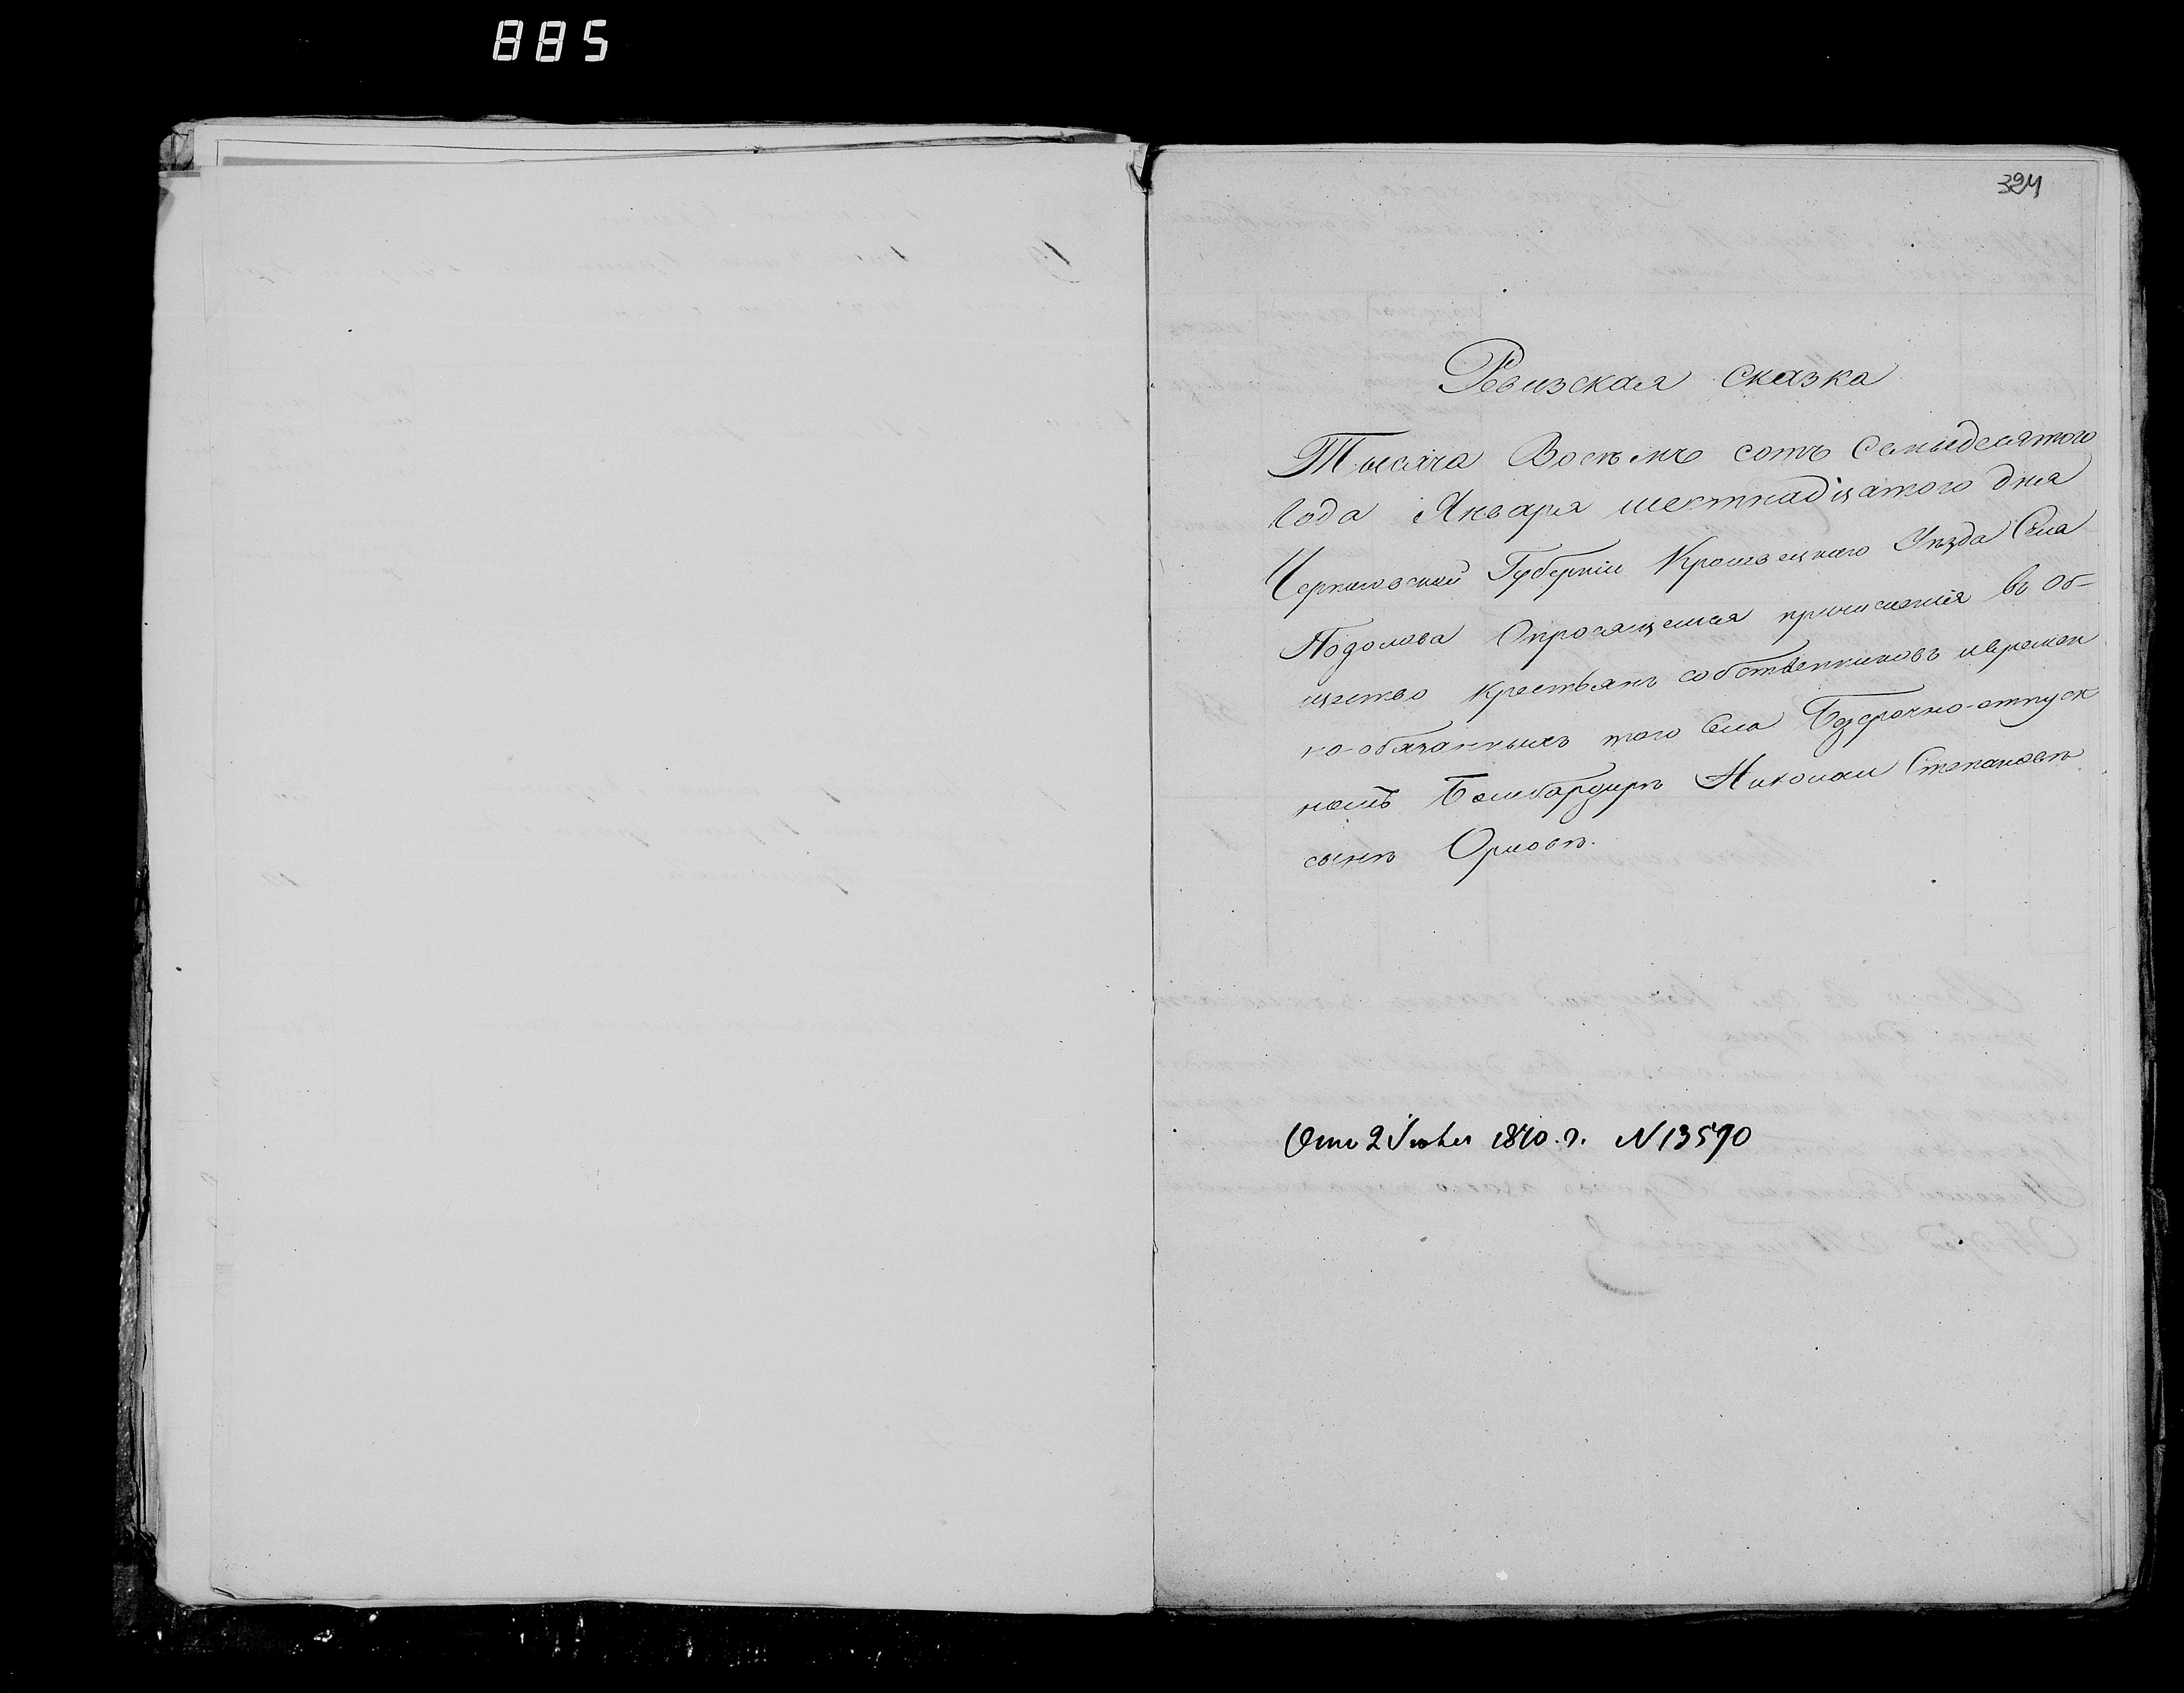 885
324
Ревизская сказка
Тысяча Восемь сотъ Семьдесятого
Года Января шестнадцатого дня
Черниговской Губерніи Кролевецкаго Уѣзда Села
Подолова Опросящемся причисленія въ Об-
щество крестьянъ собственниковъ ивремен
но-обязанныхъ того Села Безсрочно-отпуск
номъ Бомбардирѣ Николаи Степановѣ
сынѣ Орловѣ.
От 2 Іюля 1870. г. N 13590